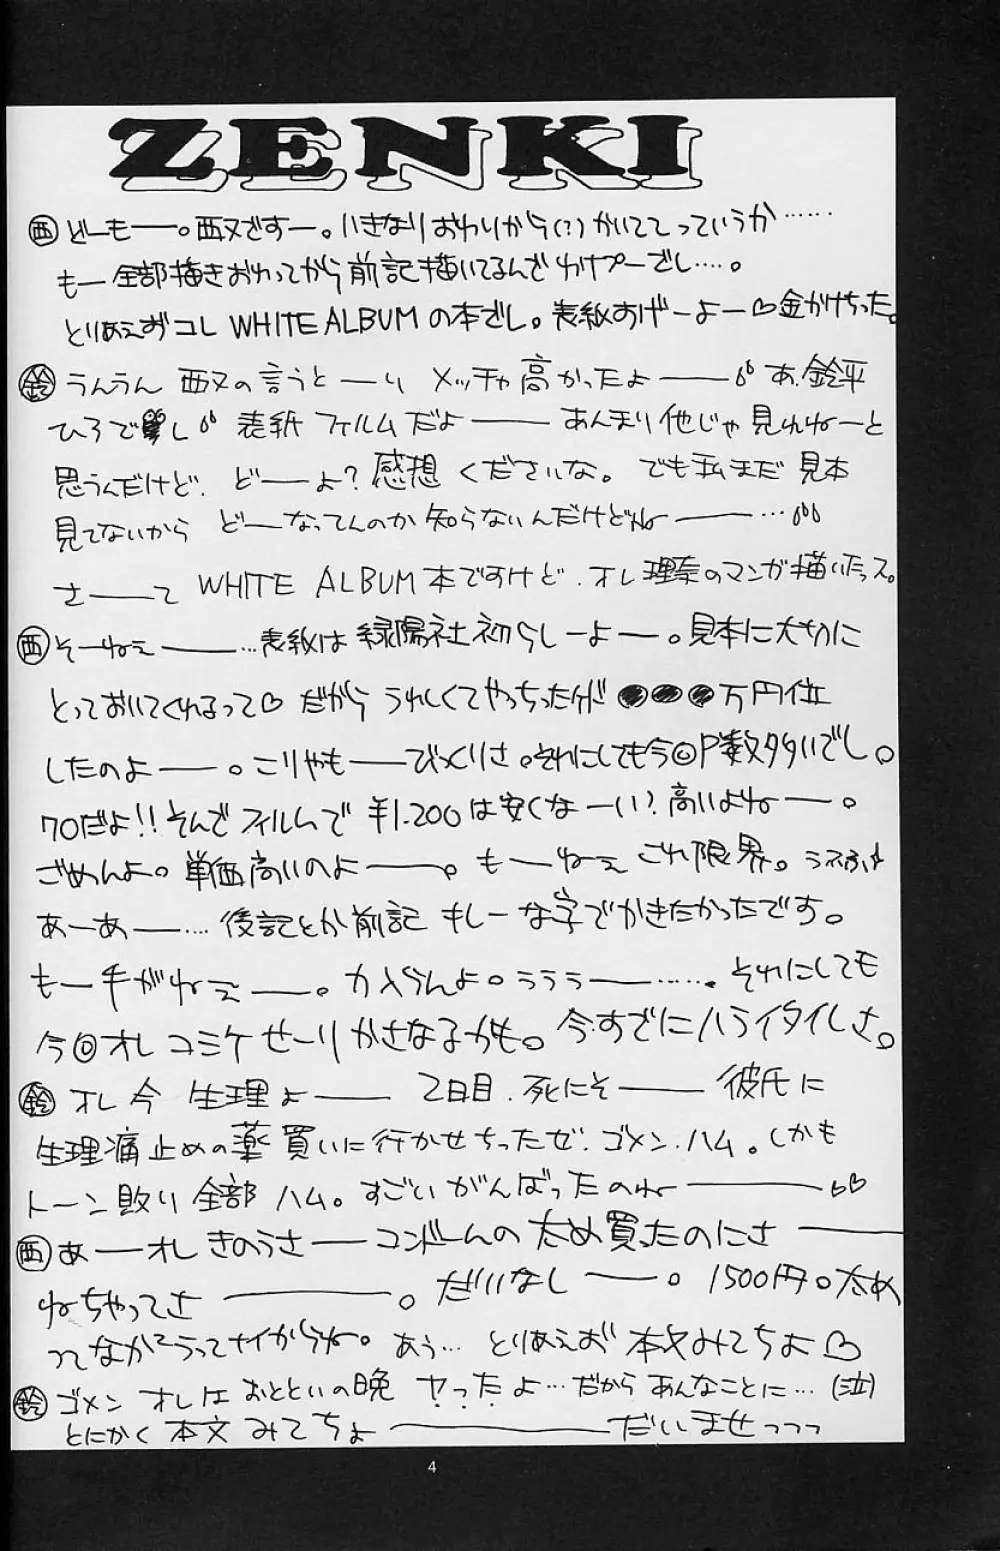 ZENKI
西 どーもー。西又ですー。いきなりおわりから(?)かいててっていうか……
もー全部描きおわってから前記描いてるんでわけプーでし…。
とりあえずコレ WHITE ALBUM の本でし。表紙すげーよー♡金かけちった。
鈴 うんうん 西又の言うとーり メッチャ高かったよー あ、鈴平
ひろでし 表紙 フィルムだよー あんまり他じゃ見れねーと
思うんだけど、どーよ?感想 くださいな。でも私まだ 見本
見てないから どーなってんのか 知らないんだけどねー…
さーて WHITE ALBUM 本ですけど、オレ理奈のマンガ描いたっス。
西 そーねぇー…表紙は 緑陽社初らしーよー。見本に大切に
とっておいてくれるって♡ だから うれしくてやっちったが ●●●万円位
したのよー。こりゃもーびっくりさ。それにしても今回P数多いでし。
70だよ!!そんでフィルムで ¥1.200は安くなーい?高いよねー。
ごめんよ。単価高いのよー。もーねぇ これ限界。
あーあー…。後記とか前記 キレーな字でかきたかったです。
もー手がねぇー。力入らんよ。ううぅー……。それにしても
今回オレ コミケせーりかさなるかも。今すでにハライタイしさ。
鈴 オレ 今 生理よー 2日目、死にそー 彼氏に
生理痛止めの薬買いに行かせちったぜ、ゴメン、ハム。しかも
トーン貼り 全部 ハム。すごい がんばったのねー♡♡
西 あーオレ きのうさー コンドームの 太め買ったのにさー
ねちゃってさー。だいなしー。1500円。太め
ってなかなかうってナイからね。あう… とりあえず 本文みてちょ♡
鈴 ゴメン オレは おとといの晩 ヤったよ…だから あんなことに…(泣)
とにかく 本文 みてちょーだいませっっっ
4